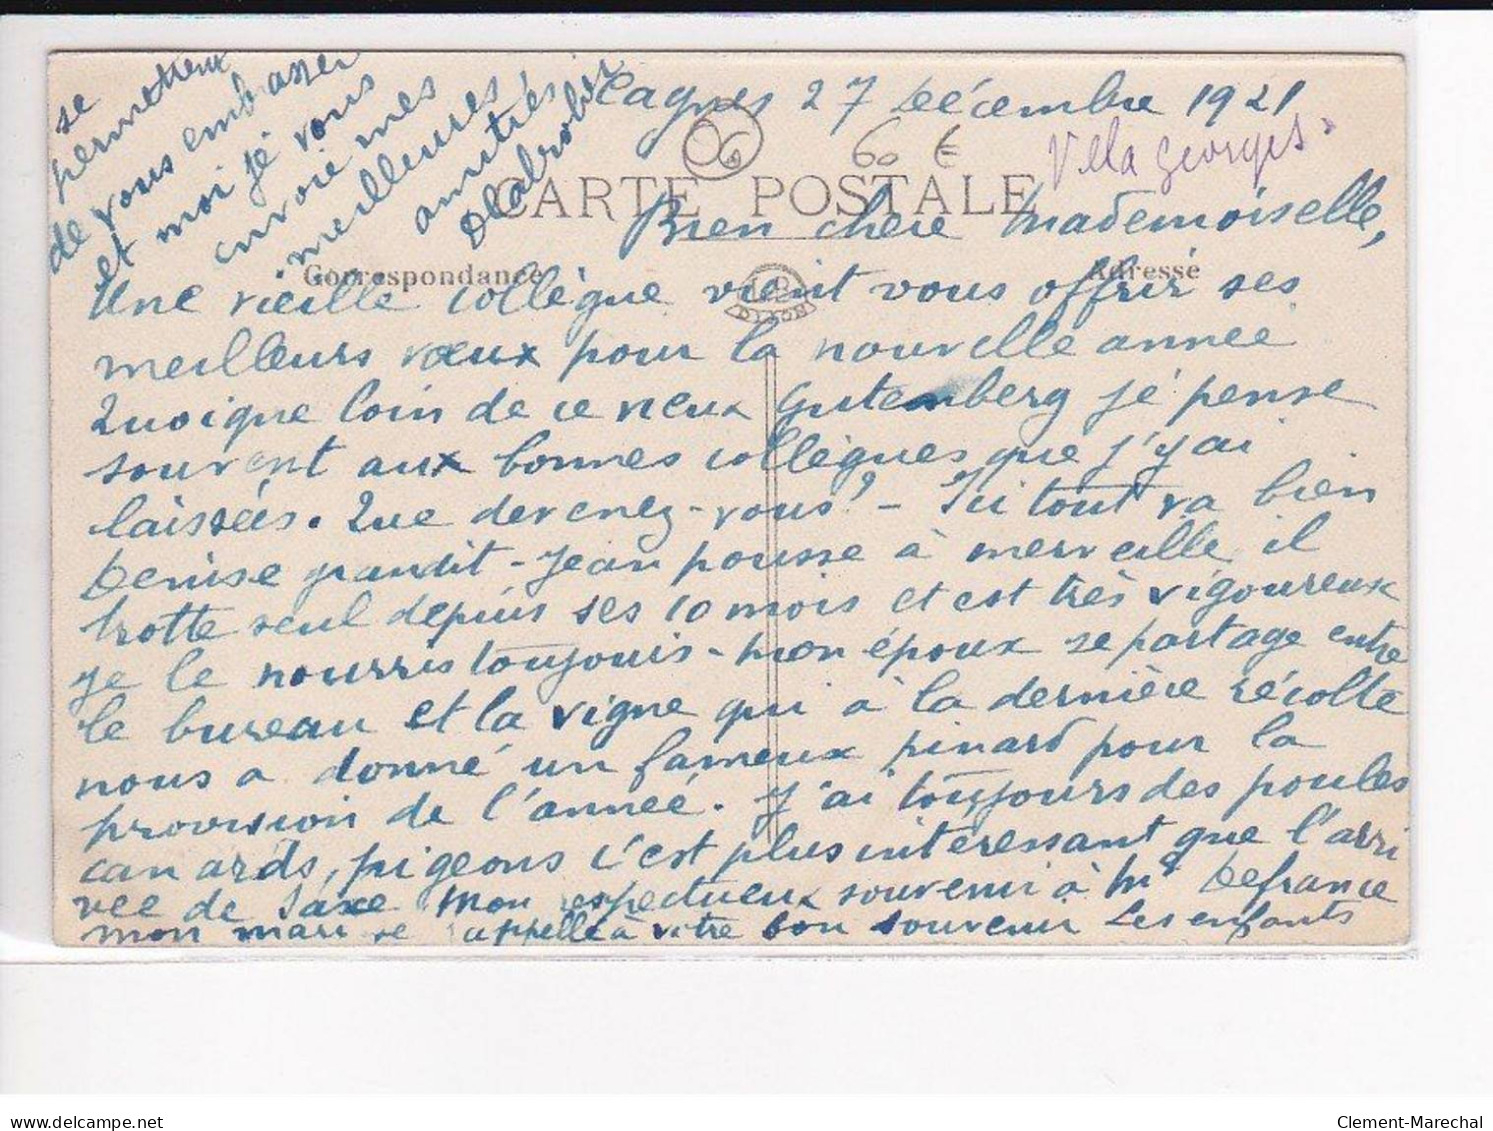 Cagnes 27 décembre 1921
Villa Georges
06
60 €
CARTE POSTALE
Correspondance
Adresse
DIJON
Bien chère Mademoiselle,
Une vieille collègue vient vous offrir ses
meilleurs vœux pour la nouvelle année
Quoique loin de ce vieux Gutemberg je pense
souvent aux bonnes collègues que j'y ai
laissées. Que devenez-vous? - Ici tout va bien
Denise grandit - Jean pousse à merveille il
trotte seul depuis ses 10 mois et est très vigoureux
je le nourris toujours - mon époux se partage entre
le bureau et la vigne qui à la dernière récolte
nous a donné un fameux pinard pour la
provision de l'année. J'ai toujours des poules
canards, pigeons c'est plus intéressant que l'arri
vée de Saxe Mon respectueux souvenir à Mr Defrance
mon mari se rappelle à votre bon souvenir Les enfants
se
permettent
de vous embrasser
et moi je vous
envoie mes
meilleures
amitiés
delcampe.net
Clement-Marechal